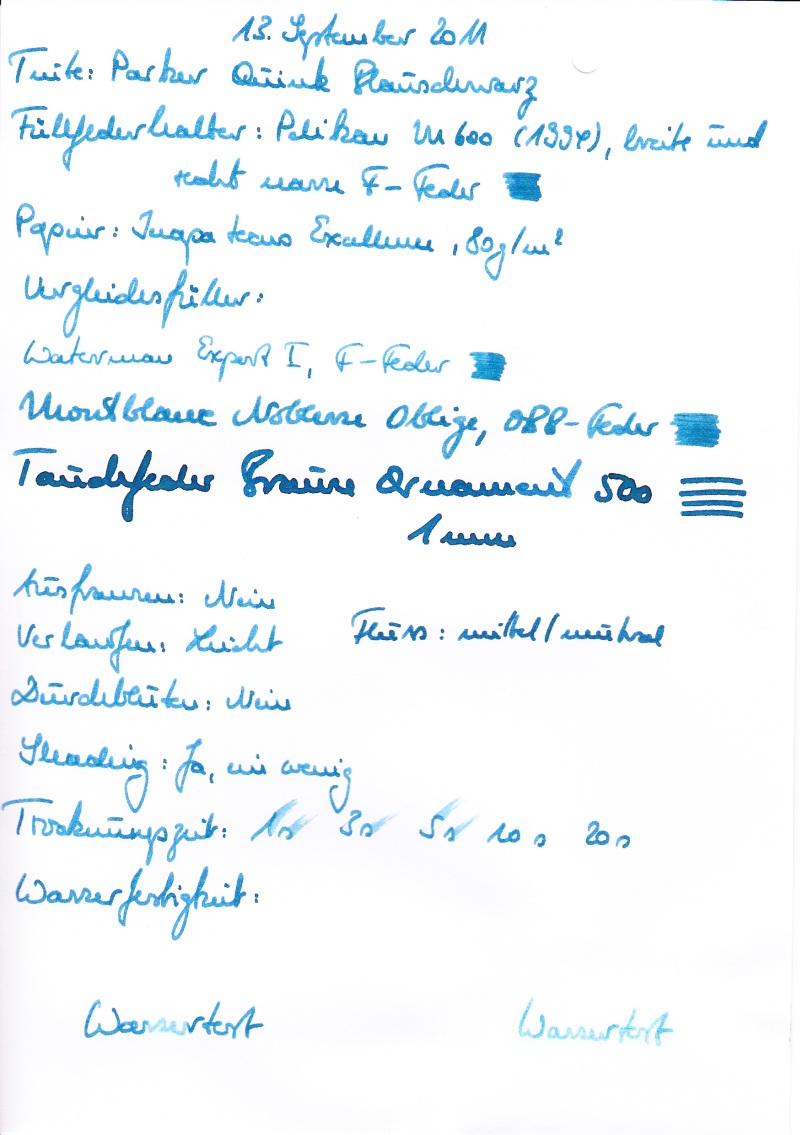 13. September 2011
Tinte: Parker Quink Blauschwarz
Füllfederhalter: Pelikan M 600 (1994), breite und
recht nasse F-Feder
Papier: Inapa tecno Excellence, 80g/m²
Vergleichsfüller:
Waterman Expert I, F-Feder
Montblanc Noblesse Oblige, OBB-Feder
Tauchfeder Brause Ornament 500
1 mm
Ausfransen: Nein
Verlaufen: Leicht Fluss: mittel/neutral
Durchbluten: Nein
Shading: Ja, ein wenig
Trocknungszeit: 1s 3s 5s 10s 20s
Wasserfestigkeit:
Wassertest Wassertest